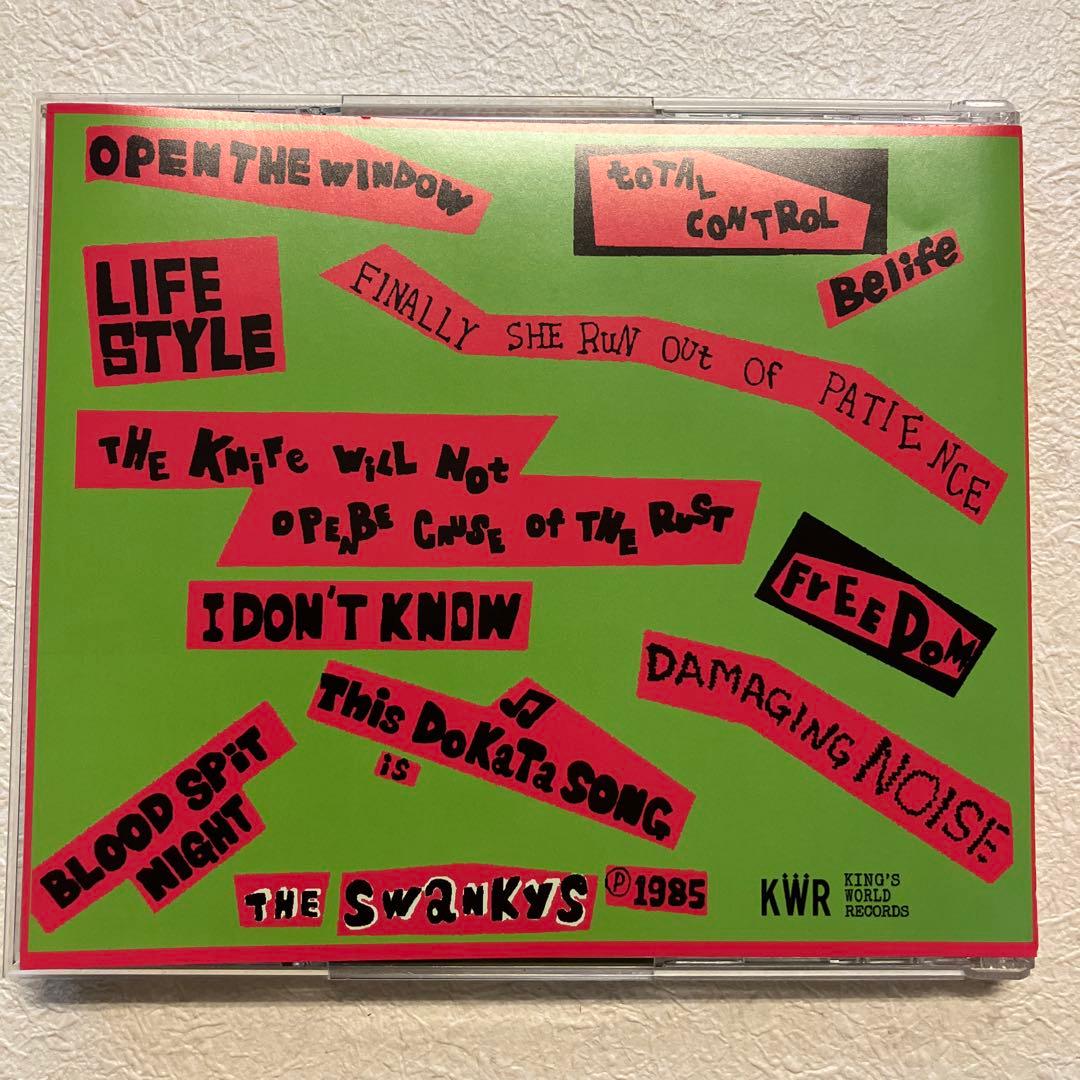 OPEN THE WINDOW
toTAL
CONTROL
Belife
LIFE
STYLE
FINALLY SHE RUN OUt OF PATIENCE
THE KNiFe WiLL Not
OPENBE CAUSE OF THE RUST
FrEEDOM
I DON'T KNOW
DAMAGING NOISE
This DoKaTa SONG
is
BLOOD SPiT
NIGHT
THE SWANKYS
Ⓟ1985
KWR
KING'S
WORLD
RECORDS